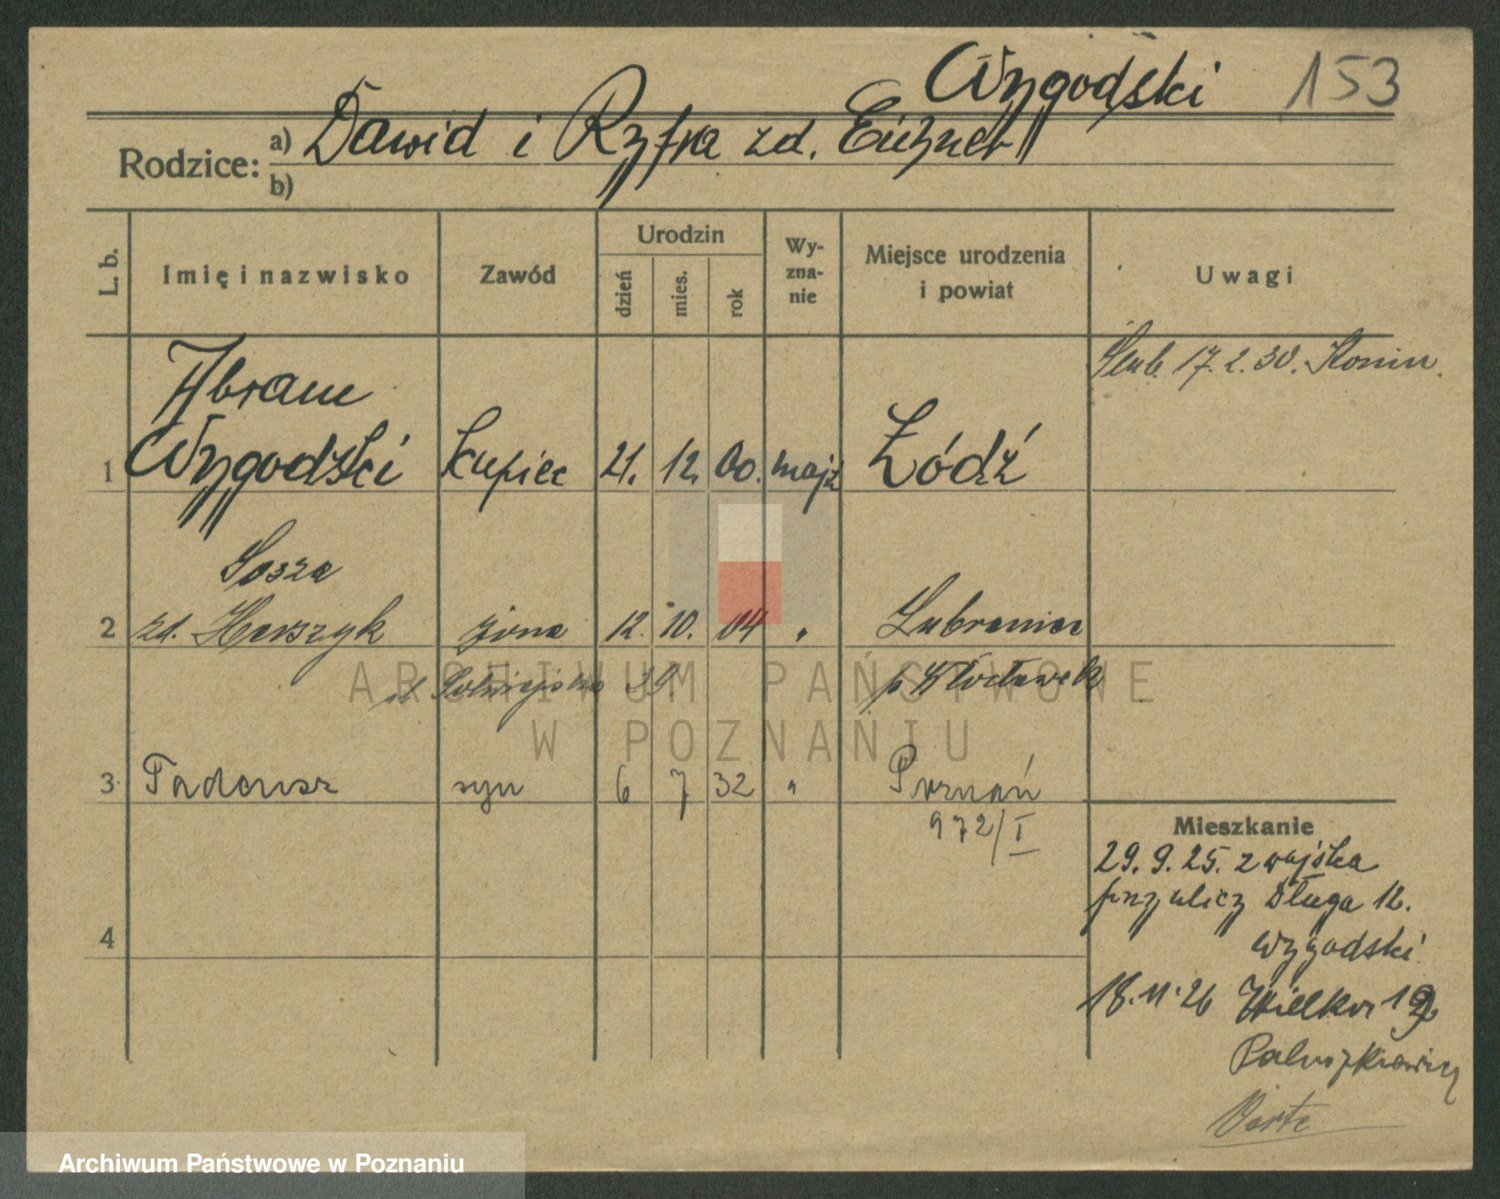 Wygodski 153
Rodzice: a) Dawid i Ryfka zd. Eizner
b)
L. b.
Imię i nazwisko
Zawód
Urodzin
dzień
mies.
rok
Wy-
zna-
nie
Miejsce urodzenia
i powiat
Uwagi
Ślub. 17. 2. 30. Konin.
Abram
1 Wygodski kupiec 21. 12. 00. mojż Łódź
Sosza
2 zd. Herszyk żona 12. 10. 04 " Lubraniec
39. p Włocławek
3 Tadeusz syn 6 7 32 " Poznań
972/I
4
Mieszkanie
29. 9. 25. z wojska
przy ulicy Długa 12.
Wygodski
18. 11. 26 Wielka
Paluszkiewicz
Verte
ARCHIWUM PAŃSTWOWE
W POZNANIU
Archiwum Państwowe w Poznaniu